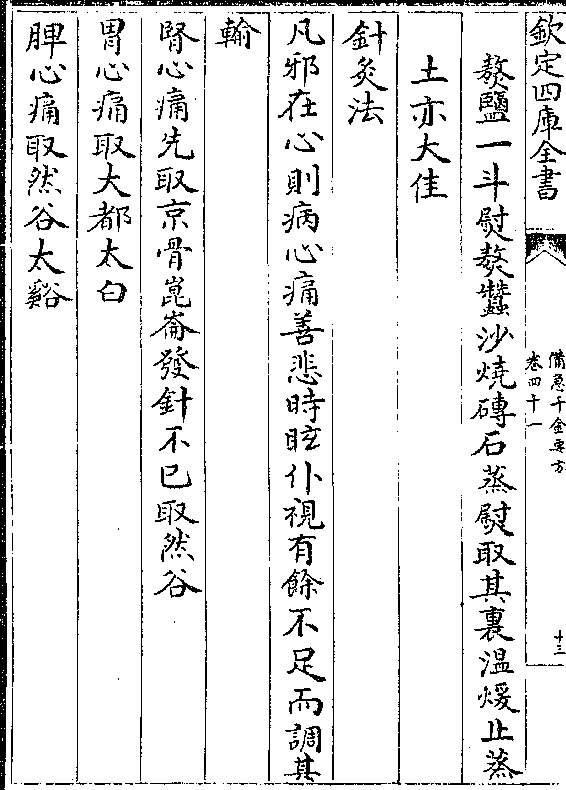 欽定四庫全書
備急千金要方
卷四十一
十三
熬鹽一斗熨熬蠶沙燒磚石蒸熨取其裏溫煖止蒸
土亦大佳
針灸法
凡邪在心則病心痛善悲時眩仆視有餘不足而調其
輸
腎心痛先取京骨崑崙發針不已取然谷
胃心痛取大都太白
脾心痛取然谷太谿